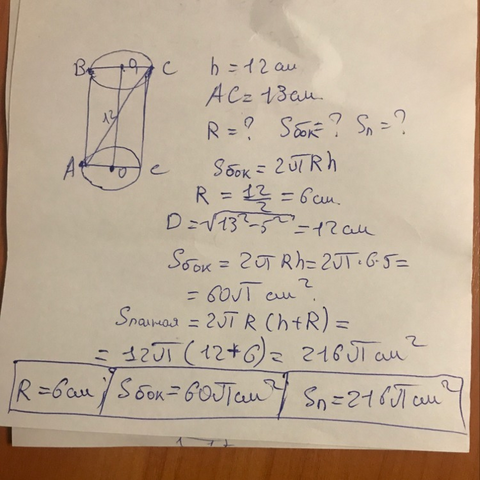 B O C
12
A O C
h = 12 см
AC = 13 см.
R = ? Sбок = ? Sп = ?
Sбок = 2πRh
R = 12/2 = 6 см.
D = √13² - 5² = 12 см
Sбок = 2πRh = 2π · 6 · 5 =
= 60π см².
Sполная = 2πR (h + R) =
= 12π (12 + 6) = 216π см²
R = 6 см; Sбок = 60π см²; Sп = 216π см²